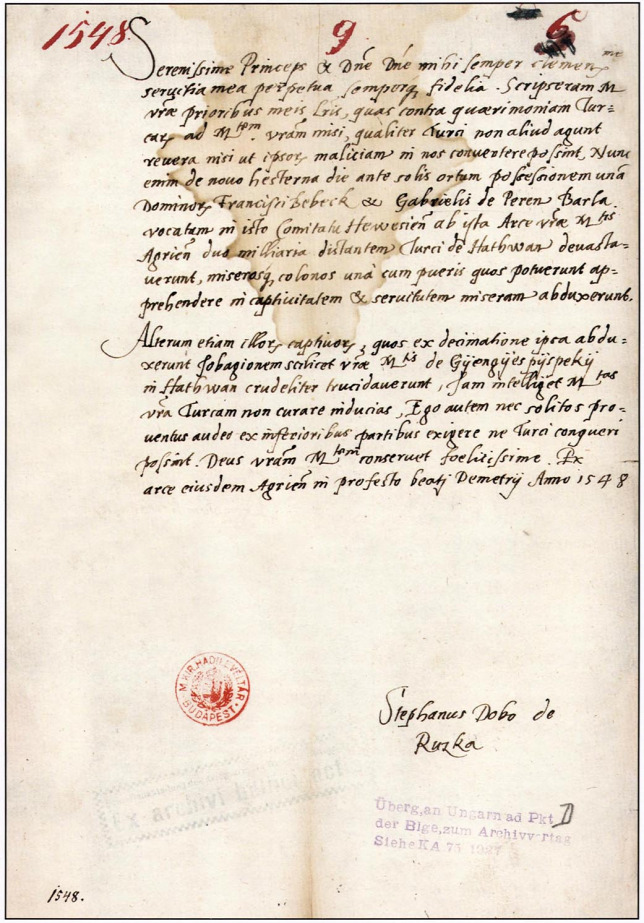 1548.
9
6
Serenissime Princeps & Dne Dne mihi semper clemen me
servitia mea perpetua semperq fidelia. Scripseram M
vræ prioribus meis Lris, quas contra quærimoniam Tur=
car ad M tem. vram misi, qualiter Turci non aliud agunt
revera nisi ut ipsor maliciam in nos convertere possint, Nunc
enim de novo hesterna die ante solis ortum possessionem una
Dominor Francisci Bebeck & Gabrielis de Peren Barla
vocatam in isto Comitatu Hewesien ab ista Arce vræ M tis
Agrien duo milliaria distantem Turci de Hathwan devasta=
verunt, miserosq colonos una cum pueris quos potuerunt ap=
prehendere in captivitatem & servitutem miseram abduxerunt.
Alterum etiam illor captivor, quos ex decimatione ipsa abdu=
xerunt Jobagionem scilicet vræ M tis de Gÿengÿes pÿspekÿ
in Hathwan crudeliter trucidaverunt, Jam intelliget M tas
vra Turcam non curare inducias, Ego autem nec solitos pro=
ventus audeo ex inferioribus partibus exigere ne Turci conqueri
possint. Deus vram M tem conservet foelicissime. Ex
arce eiusdem Agrien in profesto beatj Demetrij Anno 1548
M. KIR. HADILEVÉLTÁR
BUDAPEST
Stephanus Dobo de
Ruzka
Überg,an Ungarn ad Pkt D
der Blge,zum Archivvertag
Siehe KA 75 1927
1548.